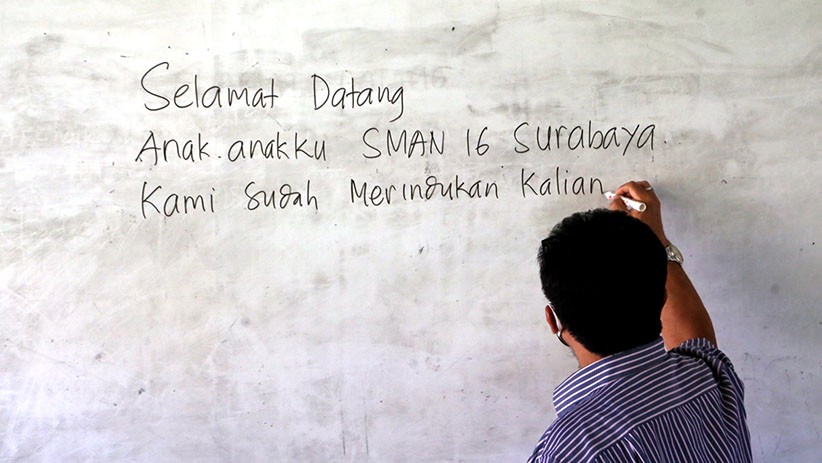 Selamat Datang
Anak.anakku SMAN 16 Surabaya.
Kami Sudah Merindukan Kalian